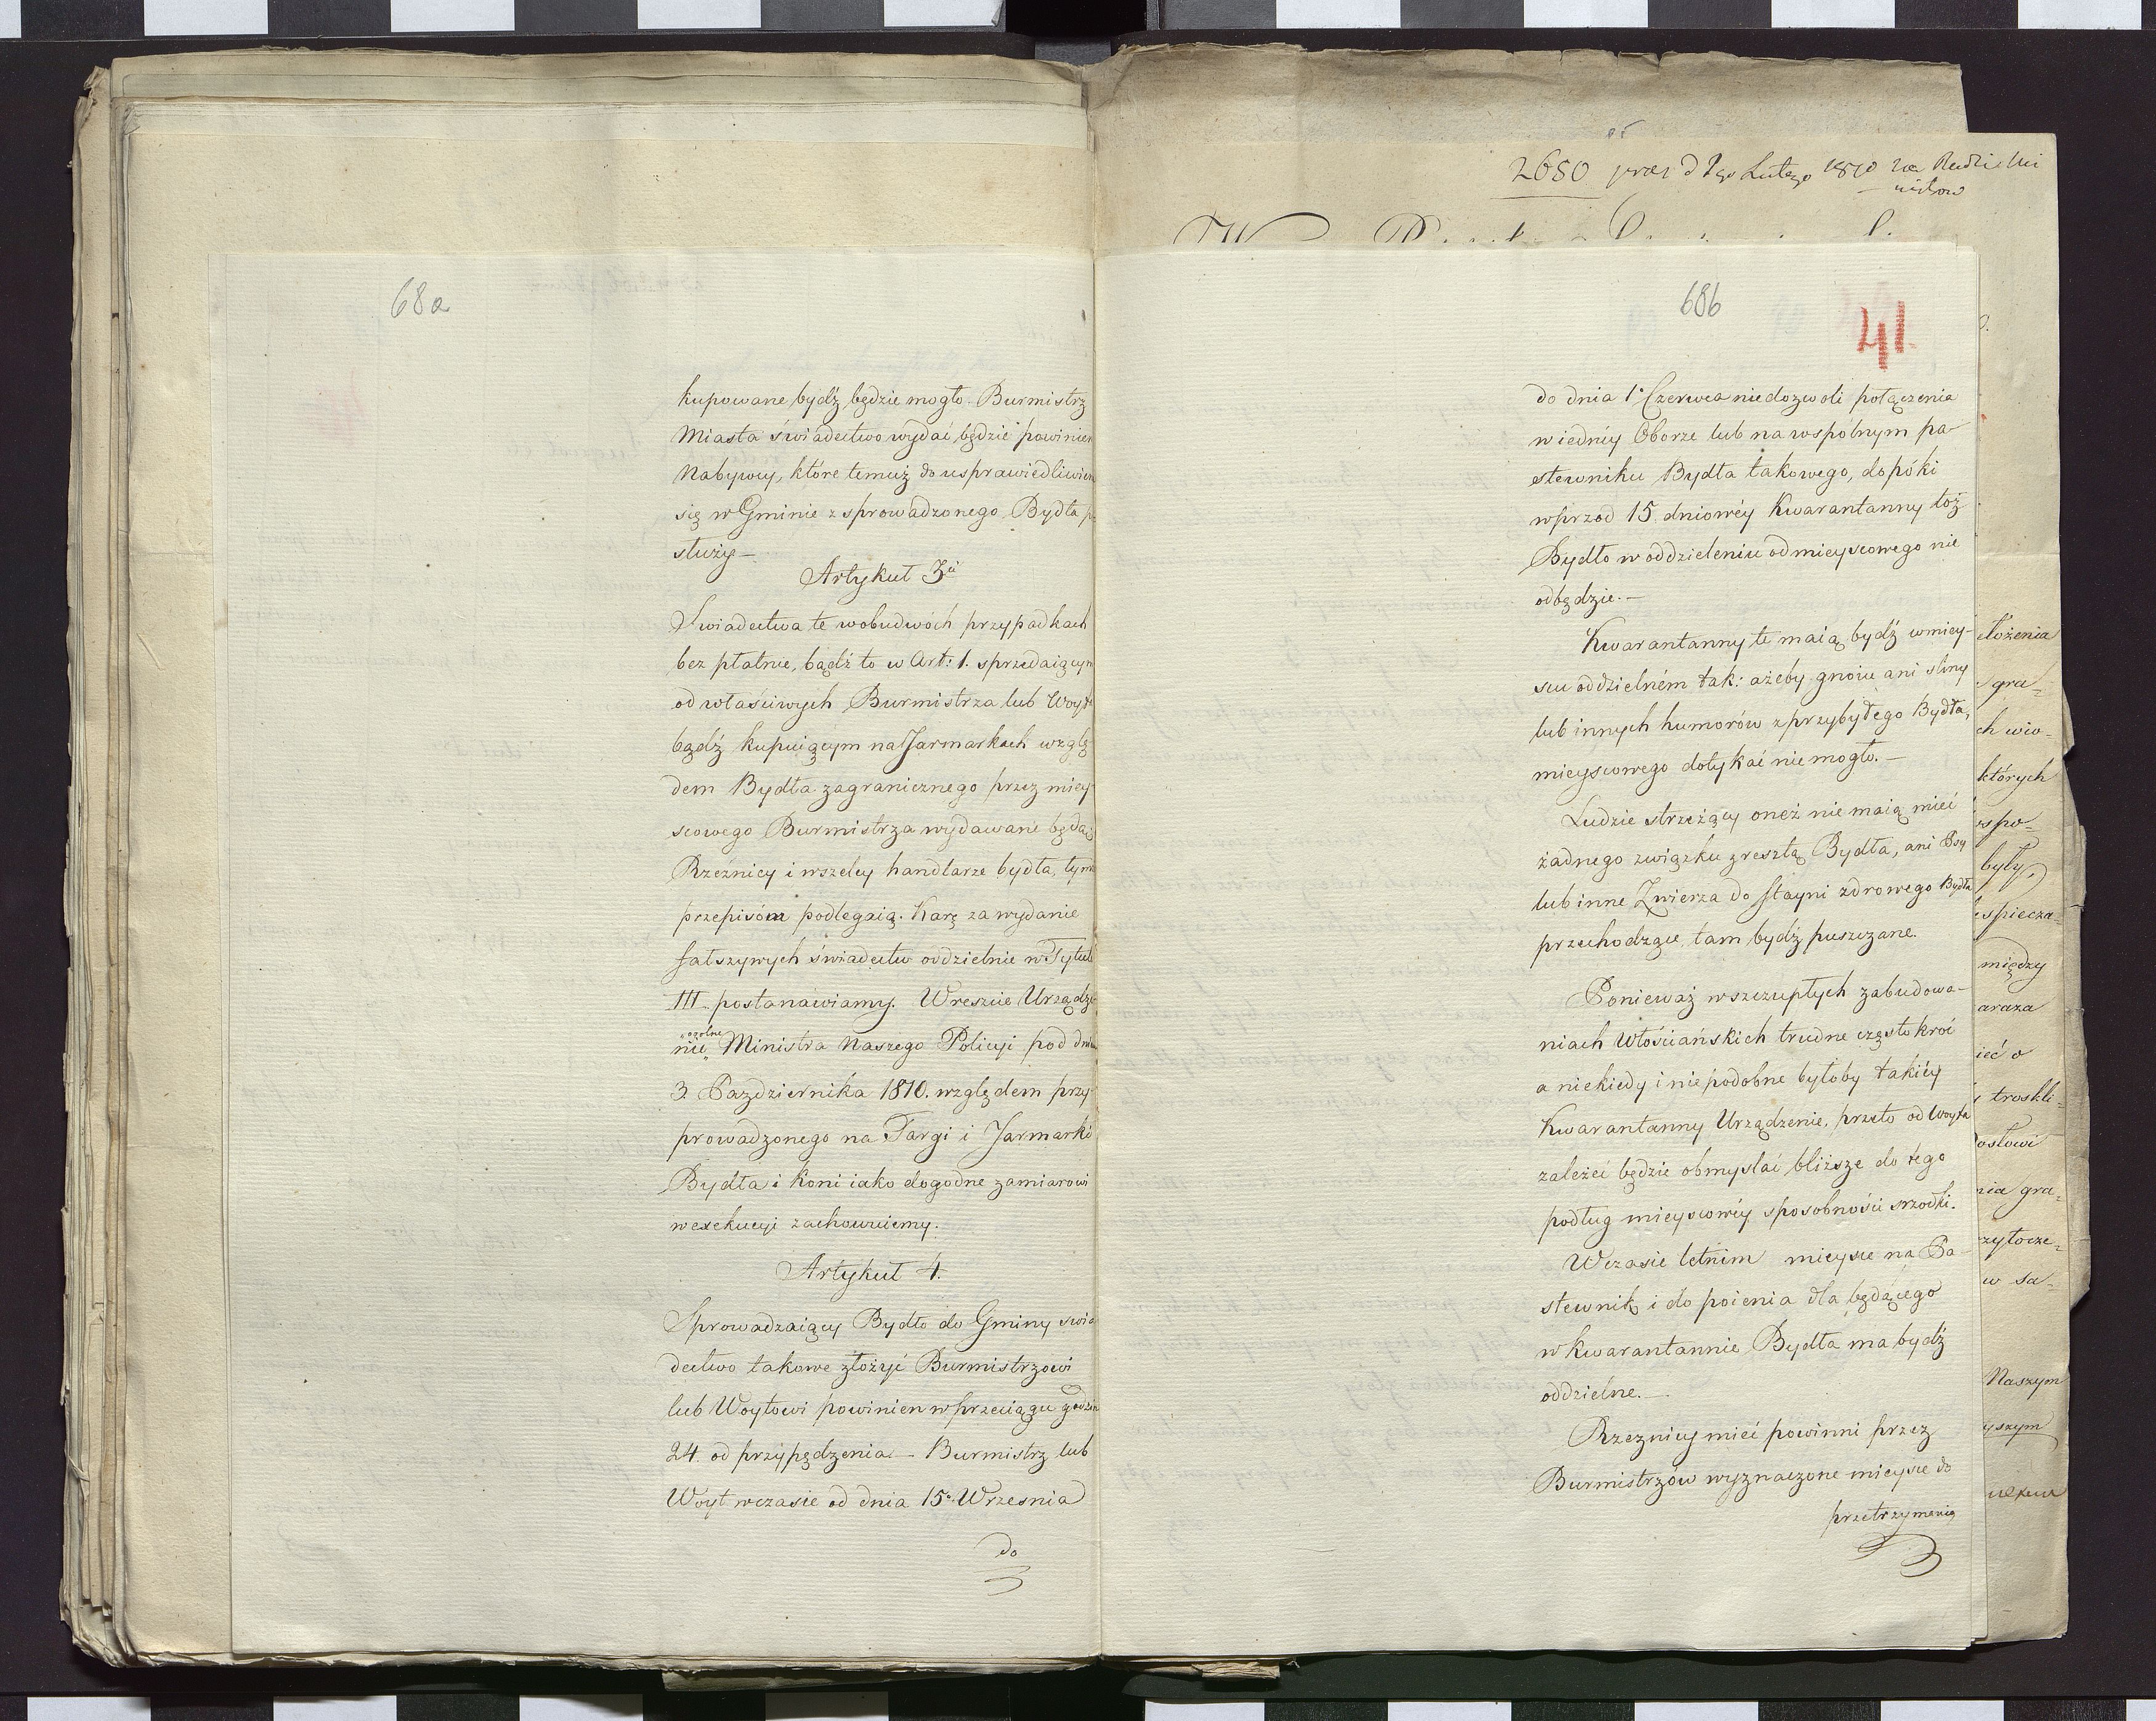 68a
kupowane bydź będzie mogło. Burmistrz
Miasta świadectwo wydać będzie powinien
Nabywcy, które temuż do usprawiedliwien
się w Gminie z sprowadzonego Bydła p
służy –
Artykuł 3ci
Swiadectwa te w obudwóch przypadkach
bez płatnie, bądź to w Art: 1. sprzedaiącym
od właściwych Burmistrza lub Woyta
bądź kupuiącym na Jarmarkach wzglę
dem Bydła zagranicznego przez miey
scowego Burmistrza wydawane będą
Rzeźnicy i wszelcy handlarze bydła, tym
przepisóm podlegaią. Karę za wydanie
fałszywych świadectw oddzielnie w Tytule
III. postanawiamy. Wreszcie Urządze
ogólne
nie Ministra Naszego Policyi pod dniem
3. Pazdziernika 1810. względem przy
prowadzonego na Targi i Jarmarki
Bydła i Koni iako dogodne zamiarowi
w exekucyi zachowuiemy.
Artykuł 4.
Sprowadzaiący Bydło do Gminy swia
dectwo takowe złożyć Burmistrzowi
lub Woytowi powinien w przeciągu godzin
24. od przypędzenia – Burmistrz lub
Woyt w czasie od dnia 15o Wrzesnia
do
2680 praes d 1go Lutego 1810
68b
41.
do dnia 1o Czerwca niedozwoli połączenia
w iednéy Oborze lub na wspólnym pa
stewniku Bydła takowego, dopóki
wprzod 15. dniowéy Kwarantanny toż
Bydło w oddzieleniu od mieyscowego nie
odbędzie. –
Kwarantanny te maią bydź w miey-
scu oddzielném tak: ażeby gnoiu ani sliny
lub innych humorów z przybyłego Bydła,
mieyscowego dotykać nie mogło. –
Ludzie strzeżący onéż nie maią mieć
żadnego związku z resztą Bydła, ani Psy
lub inne Zwierza do stayni zdrowego Bydła
przechodzące, tam bydź puszczane.
Ponieważ w szczupłych zabudowa-
niach Włościańskich trudne częstokroć
a niekiedy i niepodobne byłoby takiéy
Kwarantanny Urządzenie, przeto od Woyta
zależeć będzie obmyslać bliższe do tego
podług mieyscowéy sposobności srzodki.
W czasie letnim mieysce na Pa-
stewnik i do poienia dla będącego
w kwarantannie Bydła ma bydź
oddzielne. –
Rzeznicy mieć powinni przez
Burmistrzów wyznaczone mieysce do
przetrzymania
ełożenia
gra-
ch wio-
których
spo-
były,
spiecza-
między
araza
ieć o
troskli-
osłowi
nia gra-
zytocze-
w sa-
Naszym
yszym